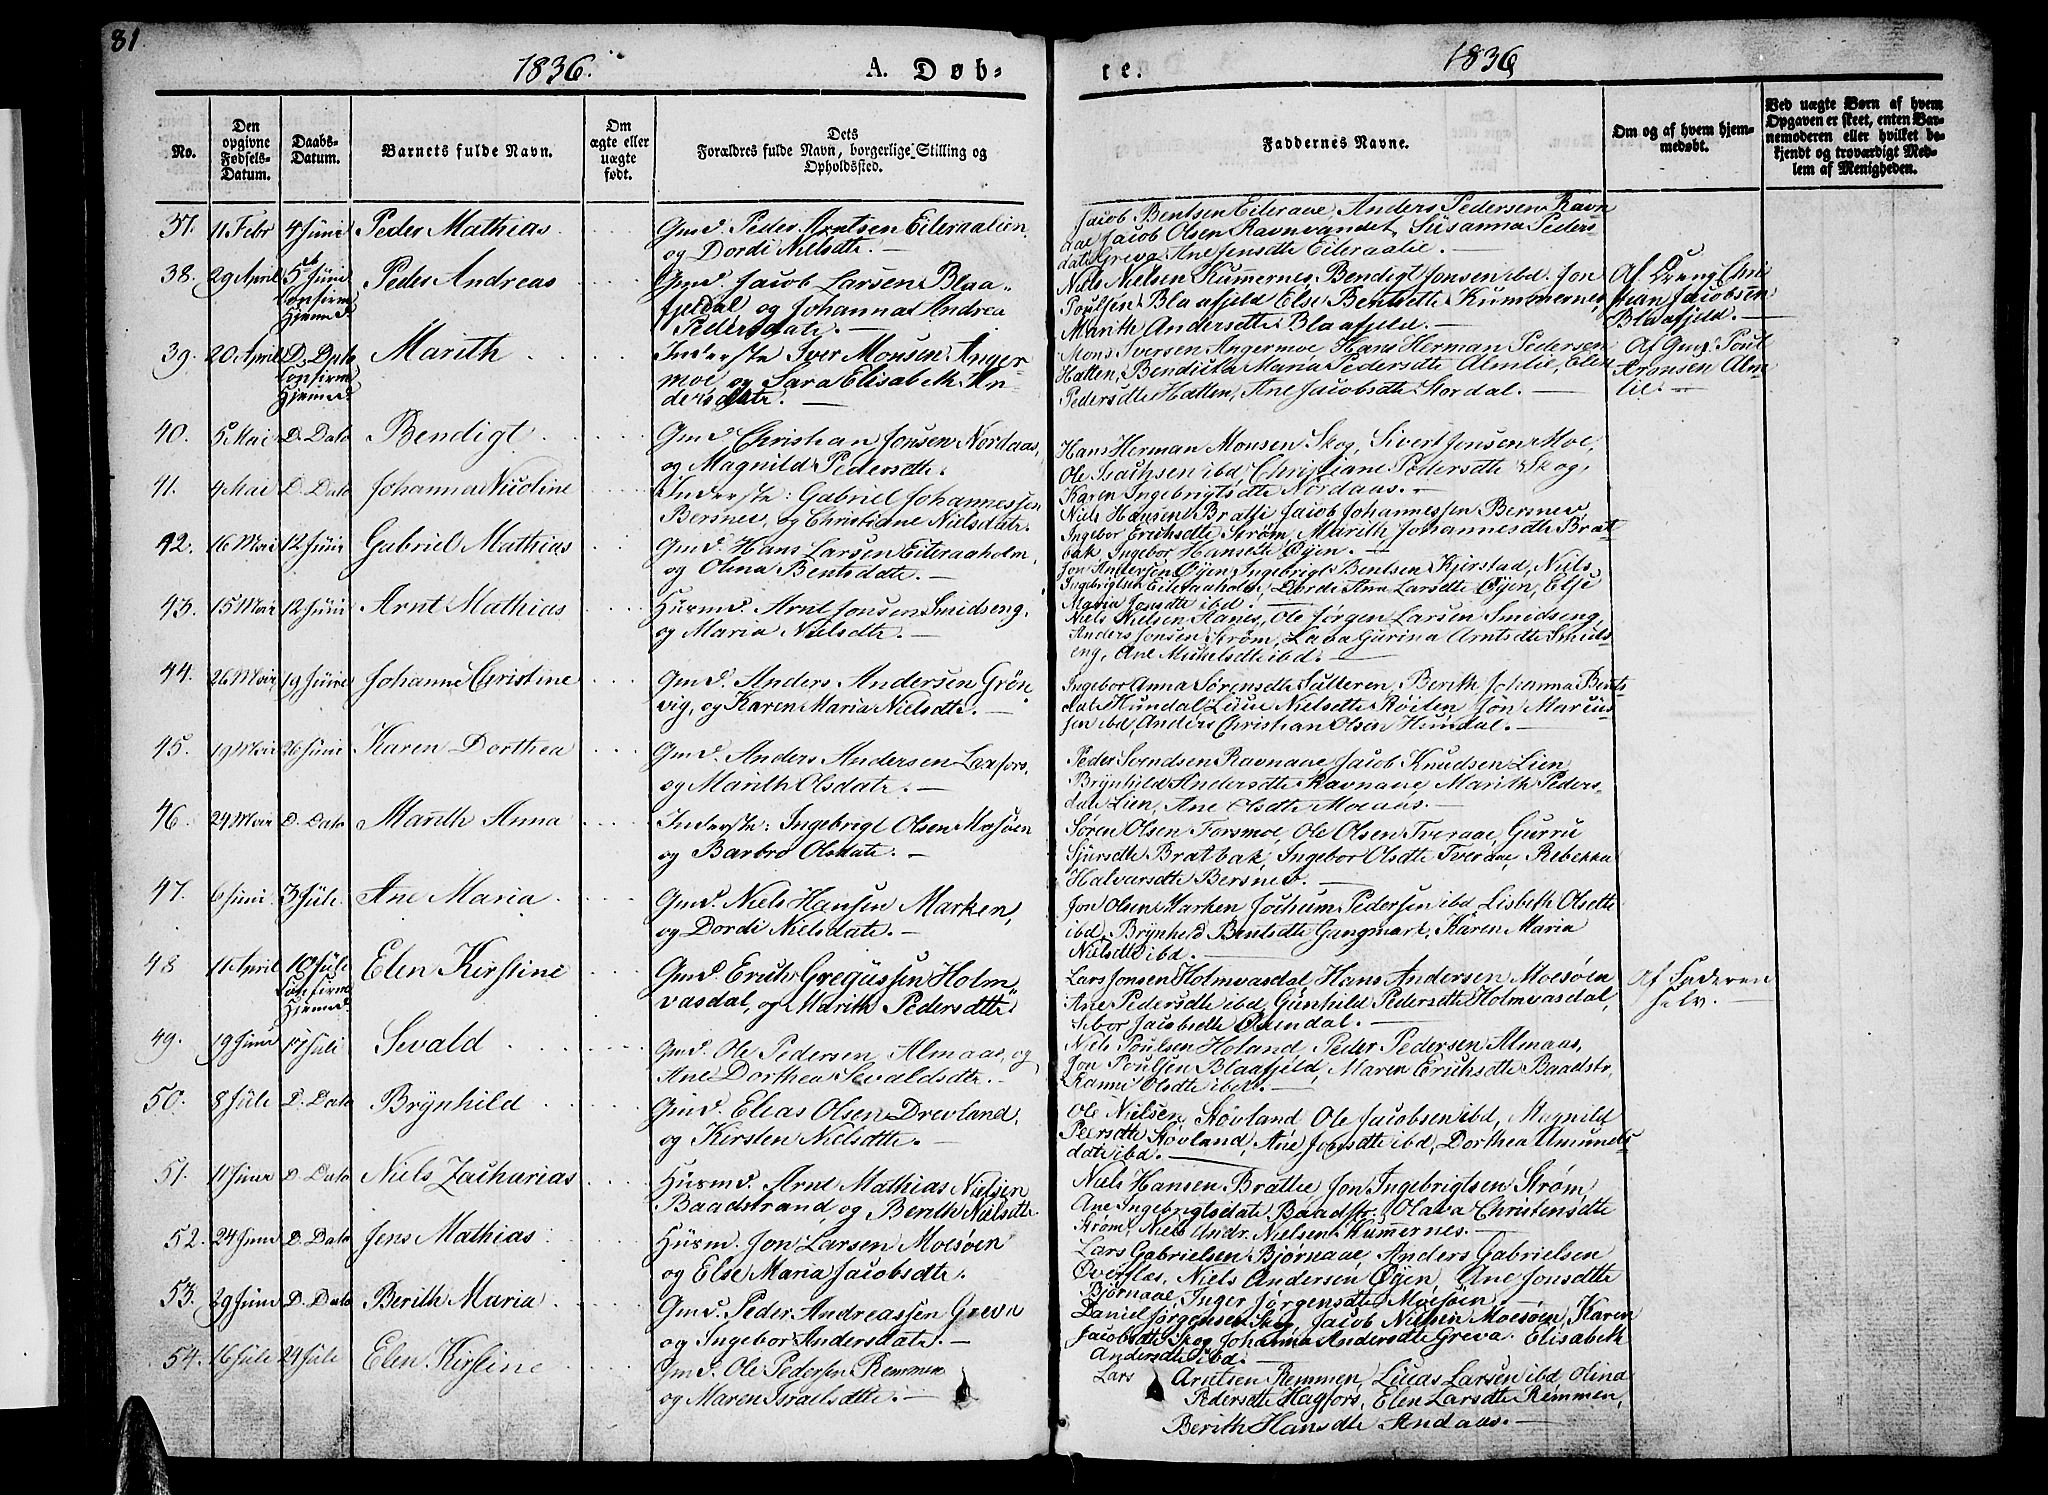 81
1836.
A. Døb-
te.
1836
No.
Den opgivne Fødsels-Datum.
Daabs-Datum.
Barnets fulde Navn.
Om ægte eller uægte født.
Dets Forældres fulde Navn, borgerlige Stilling og Opholdssted.
Faddernes Navne.
Om og af hvem hjem-medøbt.
Ved uægte Børn af hvem Opgaven er skeet, enten Bar-nemoderen eller hvilket be-kjendt og troværdigt Med-lem af Menigheden.
37. 11 Febr 4 Juni Peder Mathias
Gmd. Peder Arntsen Eiteraalien
og Dordi Nielsdtr.
Jacob Bentsen Eiteraae, Anders Pedersen Ravn
aae Jacob Olsen Ravnvandet, Susanna Peders-
datr Greva Ane Jensdtr Eiteraalie.
38. 29 April 5 Juni Confirm Hjemmed. Peder Andreas
Gmd. Jacob Larsen Blaa-
fjeldal og Johanna Andrea
Pedersdatr.
Niels Nielsen Kummernes, Bendigt Jonsen ibd. Jon
Poulsen Blaafjeld Else Bentsdtr Kummernes,
Marith Andersdtr Blaafjeld.
Af Dreng Chri
stian Jacobsen
Blaafjeld.
39. 20 April D. Dato Confirm Hjemmed. Marith
Inderste Iver Monsen Anger-
moe og Sara Elisabeth An-
dersdatr.
Mons Iversen Angermoe Hans Herman Pedersen
Hatten, Bendicta Maria Pedersdtr Almlie, Elen
Pedersdtr Hatten, Ane Jacobsdtr Stordal.
Af Gmd. Poul
Arntsen Alm-
lie.
40. 5 Mai D. Dato Bendigt
Gmd. Christian Jonsen Nordaas,
og Magnild Pedersdtr.
Hans Herman Monsen Skog, Sivert Jonsen Moe,
Ole Isachsen ibd, Christiane Pedersdtr Skog,
Karen Ingebrigtsdtr Nordaas.
41. 4 Mai D. Dato Johanna Nicoline
Inderste: Gabriel Johannessen
Bersnev, og Christiane Nielsdatr.
Niels Hansen Bratli Jacob Johannessen Bersnev,
Ingebor Erichsdtr Strøm, Marith Johannesdtr Brat-
bak, Ingebor Hansdtr Øyen.
42. 16 Mai 12 Juni Gabriel Mathias
Gmd. Hans Larsen Eiteraaholm,
og Olina Bentsdatr.
Jon Andersen Øyen, Ingebrigt Bentsen Kjerstad, Niels
Ingebrigtsen Eiteraaholm, Dordi Ana Larsdtr Øyen, Else
Maria Jonsdtr ibd.
43. 15 Mai 12 Juni Arnt Mathias
Husmd. Arnt Jonsen Smidseng,
og Maria Nielsdtr.
Niels Nielsen Hanes, Ole Jørgen Larsen Smidseng,
Anders Jonsen Strøm, Lava Gurina Arntsdtr Smids-
eng, Ane Mikelsdtr ibd.
44. 26 Mai 19 Juni Johanne Christine
Gmd. Anders Andersen Grøn-
vig, og Karen Maria Nielsdtr.
Ingebor Anna Sørensdtr Sulteren, Berith Johanna Bents-
dtr Hundal, Nielsdtr Jon Marcus-
sen ibd, Anders Christian Olsen Hundal.
45. 19 Mai 26 Juni Karen Dorthea
Gmd. Anders Andersen Laxfors,
og Marith Olsdatr.
Peder Svendsen Ravnaae Jacob Knudsen Lien
Brynhild Andersdtr Ravnaae, Marith Peders-
datr Lien, Ane Olsdtr Moeaas.
46. 24 Mai D. Dato Marith Anna
Inderste: Ingebrigt Olsen Mosøen
og Barbro Olsdatr.
Søren Olsen Forsmoe, Ole Olsen Tveraae, Gurru
Sjursdtr Bratbak, Ingebor Olsdtr Tveraae, Rebekka
Halvarsdtr Bersnev.
47. 6 Juni 3 Juli Ane Maria
Gmd. Niels Hansen Marken,
og Dordi Nielsdatr.
Jon Olsen Marken, Jochum Pedersen ibd Lisbeth Olsdtr
ibd, Brynhild Bentsdtr Gangmark, Karen Maria
Nielsdtr ibd.
48 11 April 10 Juli Confirm Hjemmed. Elen Kirstine
Gmd. Erich Gregussen Holm-
vasdal, og Marith Pedersdtr.
Lars Jonsen Holmvasdal, Hans Andersen Moesøen
Ane Pedersdtr ibd, Gunhild Pedersdtr Holmvasdal,
Jacobsdtr
Af Faderen
selv.
49. 19 Juni 17 Juli Sevald
Gmd. Ole Pedersen Almaas, og
Ane Dorthea Sevaldsdtr.
Niels Poulsen Holand, Peder Pedersen Almaas,
Jon Poulsen Blaafjeld, Maren Erichsdtr Baadstr,
Ranni Olsdtr ibd.
50. 8 Juli D. Dato Brynhild
Gmd. Elias Olsen Drevland,
og Kirsten Nielsdtr.
Ole Nielsen Støvland Ole Jacobsen ibd, Magnild
Peersdtr Støvland, Ane Jonsdtr ibd, Dorthea Amunds-
datr ibd.
51. 11 Juni D. Dato Niels Zacharias
Husmd. Arnt Mathias Nielsen
Baadstrand, og Berith Nielsdtr.
Niels Hansen Brattie Jon Ingebrigtsen Strøm,
Ane Ingebrigtsdatr Baadstr, Olava Christensdtr
Strøm, Niels Andr. Nielsen Kummernes.
52. 24 Juni D. Dato Jens Mathias
Husm. Jon Larsen Moesøen
og Else Maria Jacobsdtr.
Lars Gabrielsen Bjørnaae, Anders Gabrielsen
Øverflæs, Niels Andersen Øyen, Ane Jonsdtr
Bjørnaae, Inger Jørgensdtr Moesøen
53. 29 Juni D. Dato Berith Maria
Gmd. Peder Andreassen Greva
og Ingebor Andersdatr.
Daniel Jørgensen Skog, Jacob Nielsen Moesøen, Karen
Jacobsdtr Skog Johanna Andersdtr Greva. Elisabeth
Andersdtr ibd.
54. 16 Juli 24 Juli Elen Kirstine
Gmd. Ole Pedersen Remmen
og Maren Israelsdtr.
Lars Arntsen Remmen, Lucas Larsen ibd, Olina
Pedersdtr Hagfors, Elen Larsdtr Remmen,
Berith Hansdtr Andaas.